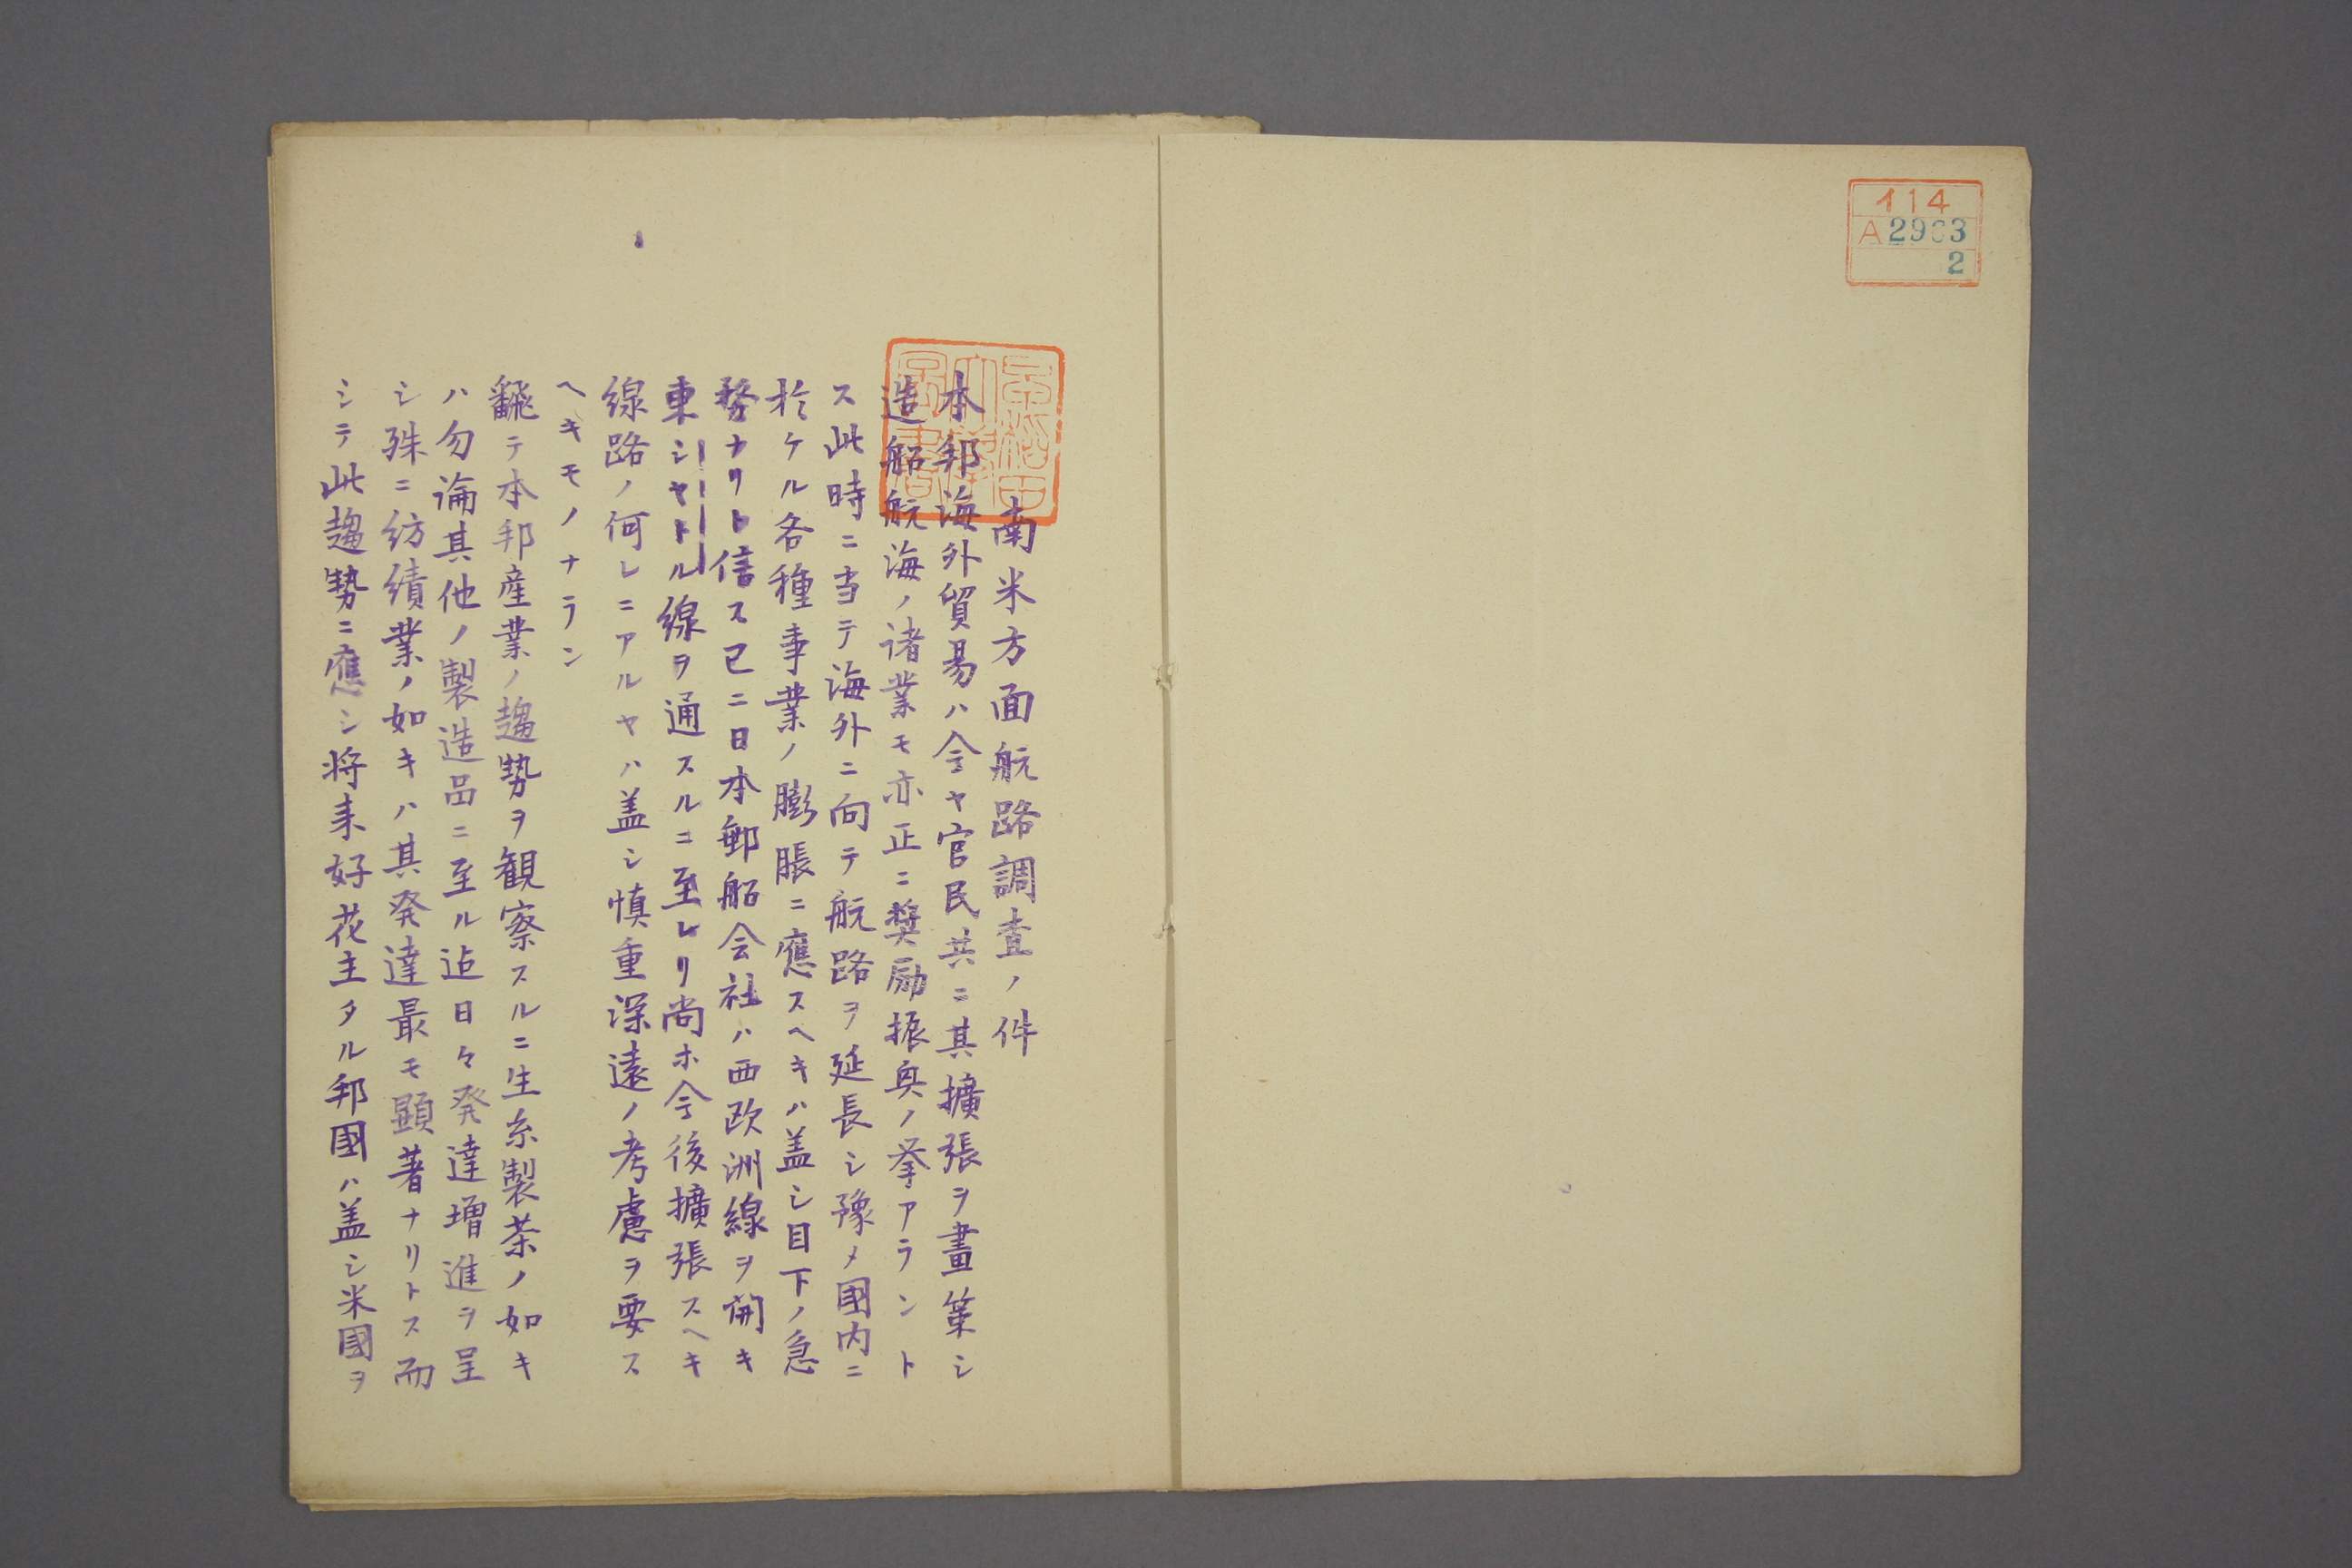 114
A2963
2
南米方面航路調査ノ件
本邦海外貿易ハ今ヤ官民共ニ其擴張ヲ畫策シ
造船航海ノ諸業モ亦正ニ奨励振興ノ挙アラント
ス此時ニ当テ海外ニ向テ航路ヲ延長シ豫メ國内ニ
於ケル各種事業ノ膨脹ニ應スヘキハ盖シ目下ノ急
務ナリト信ス已ニ日本郵船会社ハ西欧洲線ヲ開キ
東シヤトル線ヲ通スルニ至レリ尚ホ今後擴張スヘキ
線路ノ何レニアルヤハ盖シ慎重深遠ノ考慮ヲ要ス
ヘキモノナラン
飜テ本邦産業ノ趨勢ヲ観察スルニ生糸製茶ノ如キ
ハ勿論其他ノ製造品ニ至ル迠日々発達増進ヲ呈
シ殊ニ紡績業ノ如キハ其発達最モ顕著ナリトス而
シテ此趨勢ニ應シ将来好花主タル邦國ハ盖シ米國ヲ